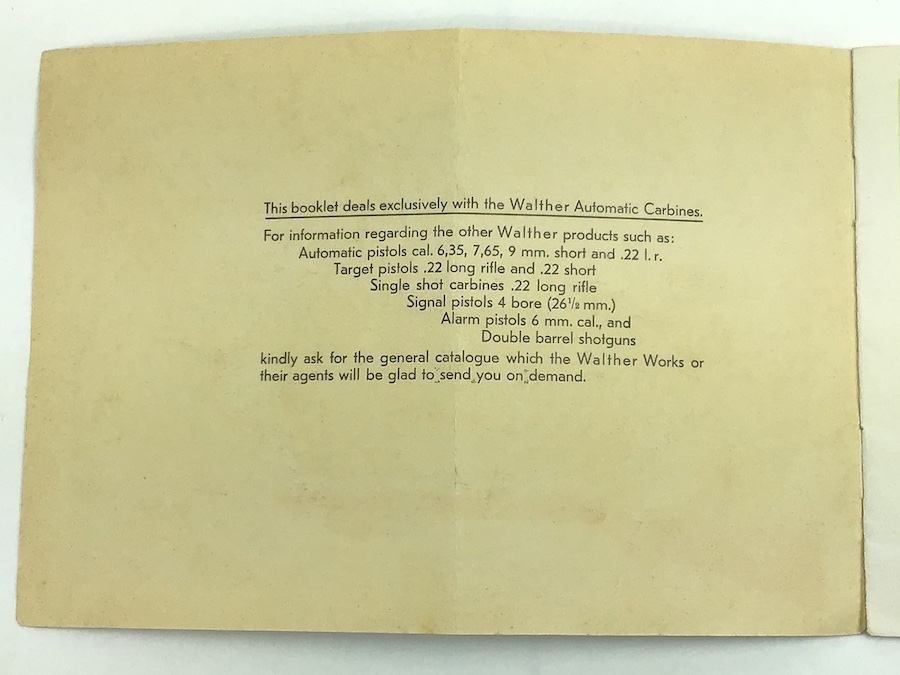 This booklet deals exclusively with the Walther Automatic Carbines.
For information regarding the other Walther products such as:
Automatic pistols cal. 6,35, 7,65, 9 mm. short and .22 l. r.
Target pistols .22 long rifle and .22 short
Single shot carbines .22 long rifle
Signal pistols 4 bore (26½ mm.)
Alarm pistols 6 mm. cal., and
Double barrel shotguns
kindly ask for the general catalogue which the Walther Works or
their agents will be glad to send you on demand.